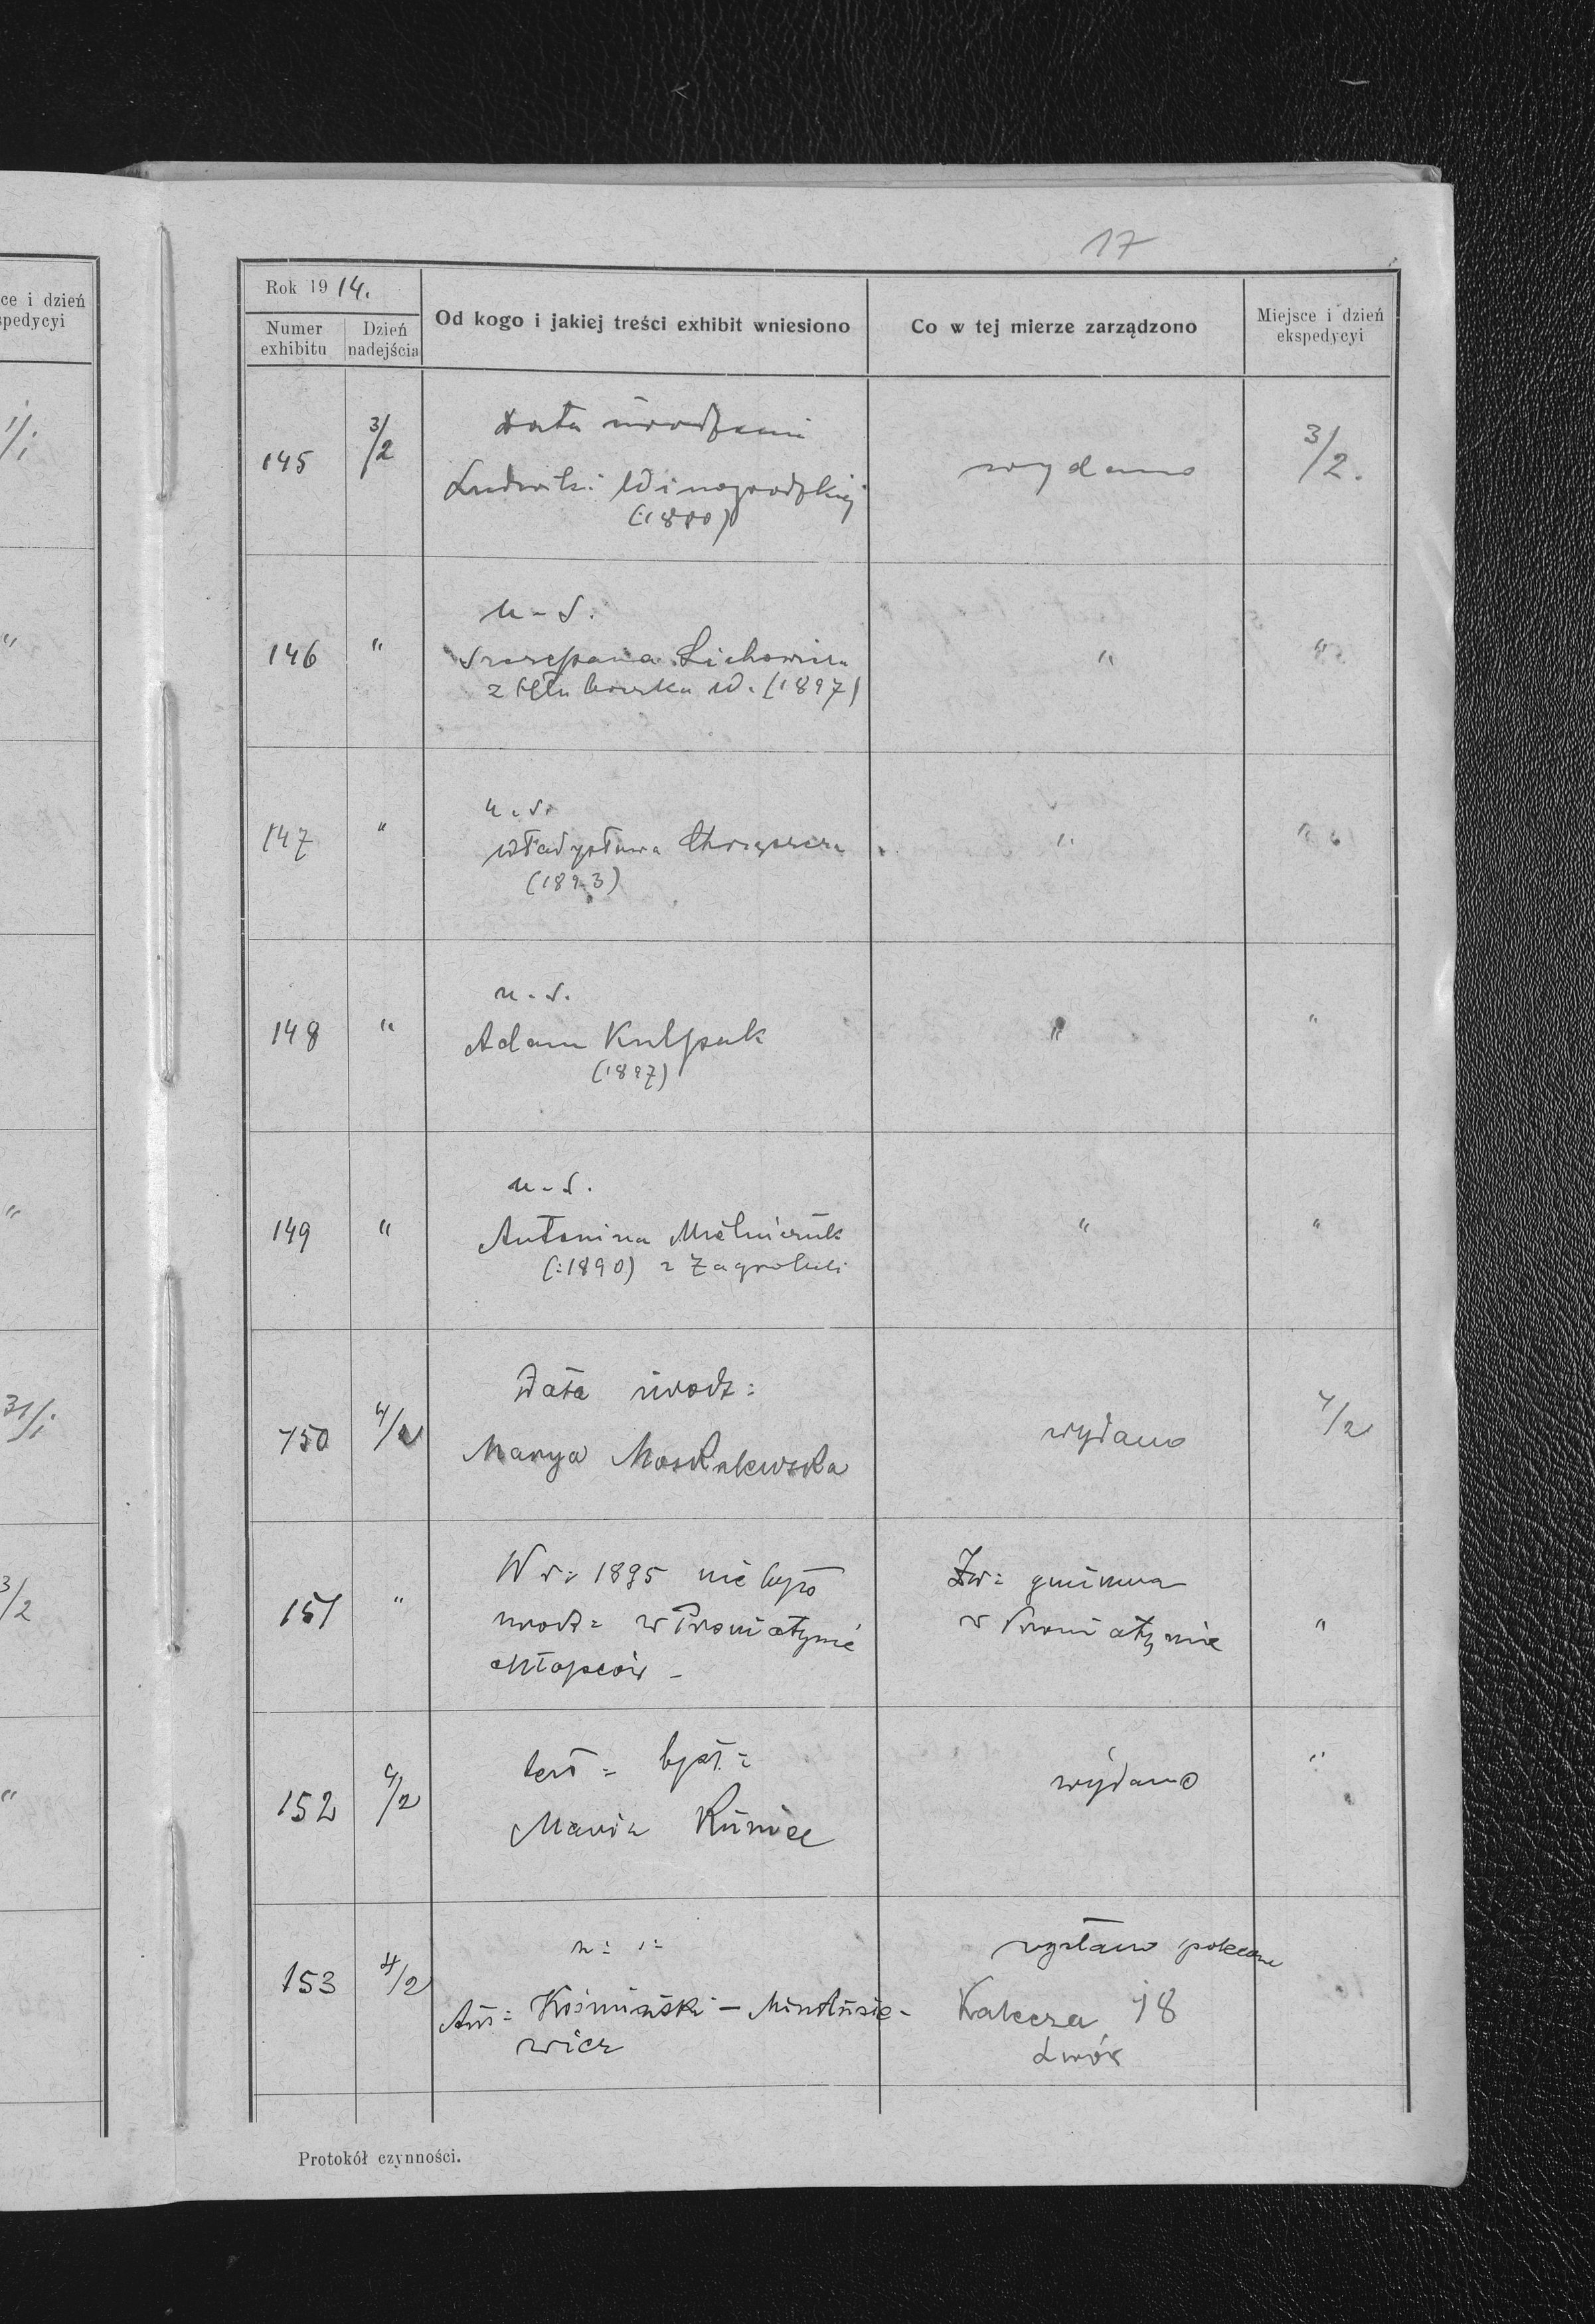 17
ce i dzień
spedycyi
1/1
"
"
31/1
3/2
"
Rok 1914.
Numer exhibitu
Dzień nadejścia
Od kogo i jakiej treści exhibit wniesiono
Co w tej mierze zarządzono
Miejsce i dzień ekspedycyi
145
3/2
Data urodzenia
Ludwiki Winogrodzkiej
wydano
3/2.
146
"
u. s.
Szczepana
z Hłuboczka W. (1897)
"
"
147
"
u. s.
Władysława Chrząszcza
(1893)
"
"
148
"
u. s.
Adam
(1897)
"
"
149
"
u. s.
Antonina Mielniczuk
(:1890) z Zagrobeli
"
"
150
4/2
Data urodz:
Marya Moskalewska
wydano
4/2
151
"
W r: 1895 nie było
urodz= w Proniatynie
chłopców -
Zw: gminna
w Proniatynie
"
152
4/2
Maria
wydano
"
153
4/2
wicz
18
Lwów
Protokół czynności.